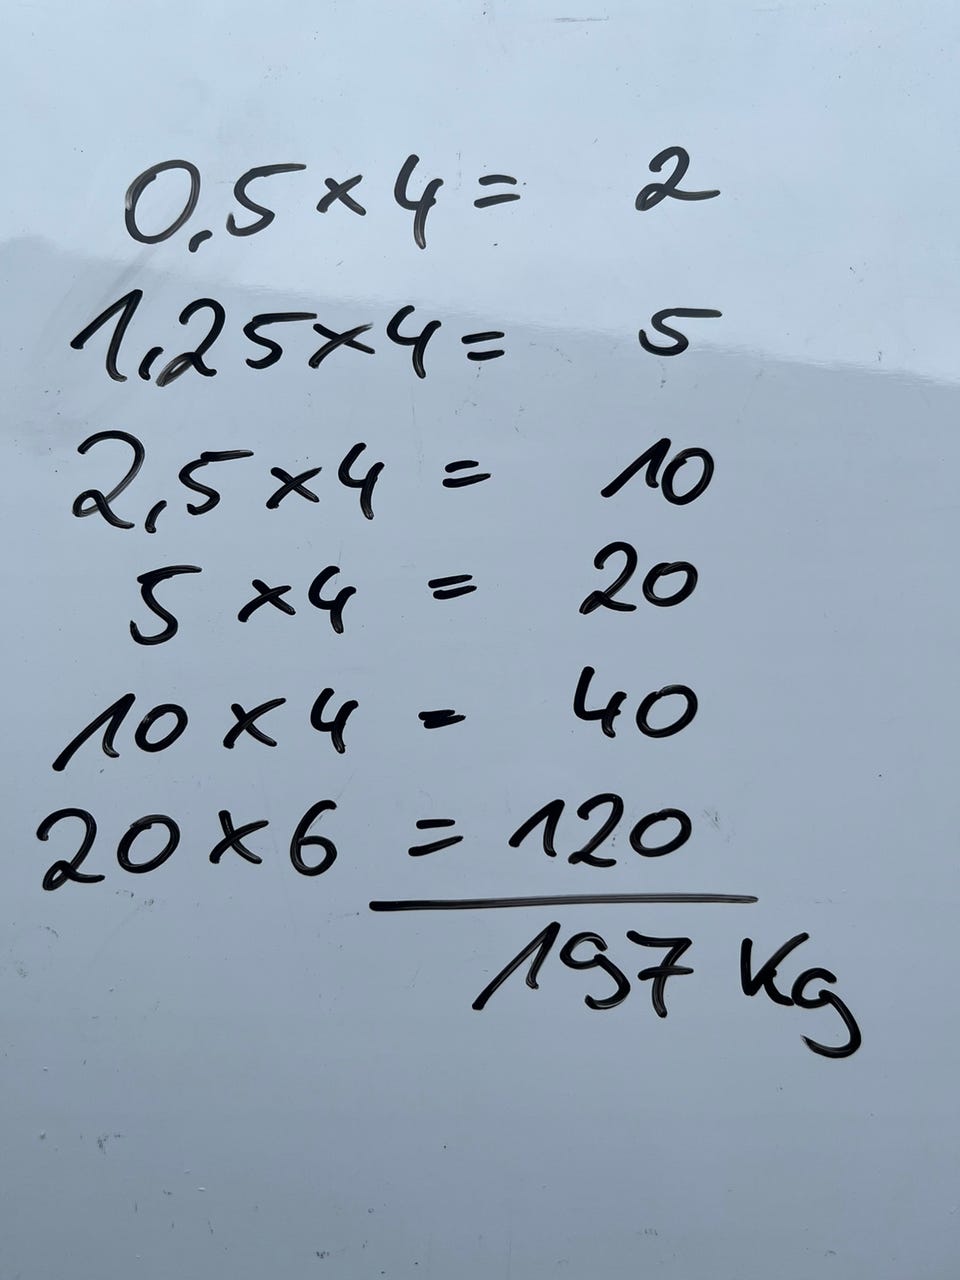 0,5 × 4 = 2
1,25 × 4 = 5
2,5 × 4 = 10
5 × 4 = 20
10 × 4 = 40
20 × 6 = 120
197 Kg